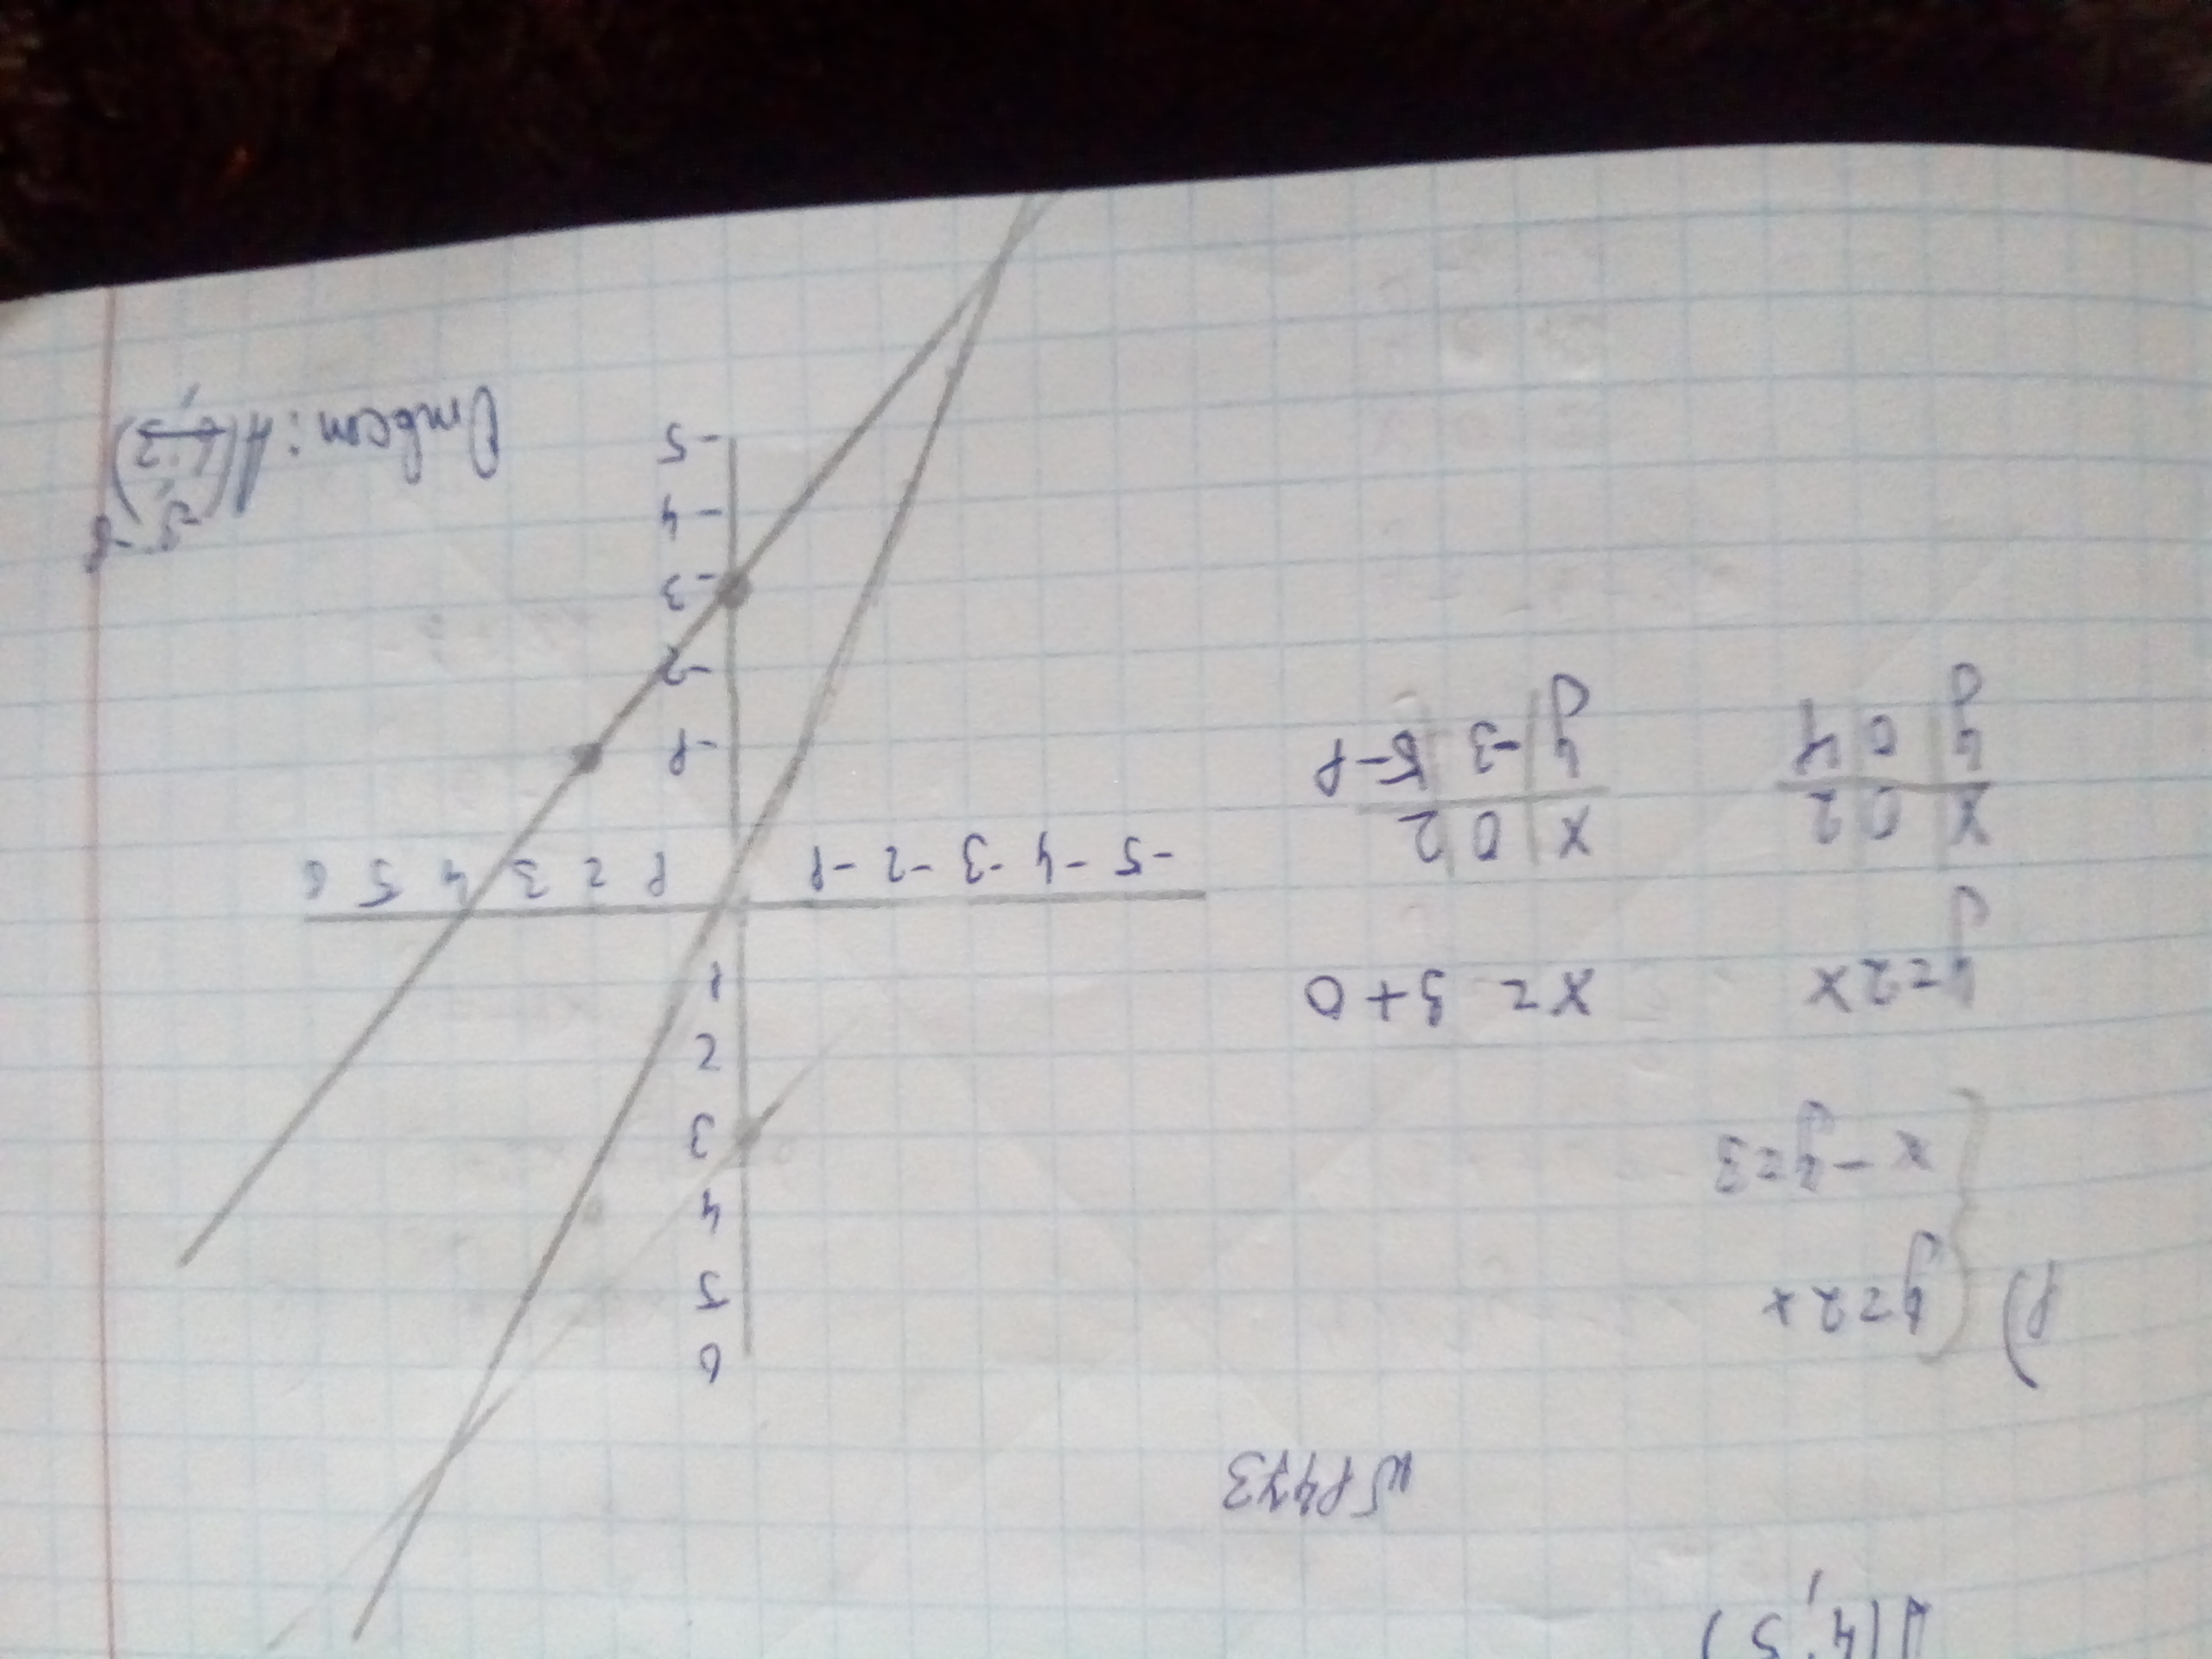 A(4;5)
№1473
1) { y=2x
x-y=3
y=2x x=3+0
x 0 2
y 0 4
x 0 2
y -3 -1
6
5
4
3
2
1
-5 -4 -3 -2 -1 1 2 3 4 5 6
-1
-2
-3
-4
-5
Ответ: A